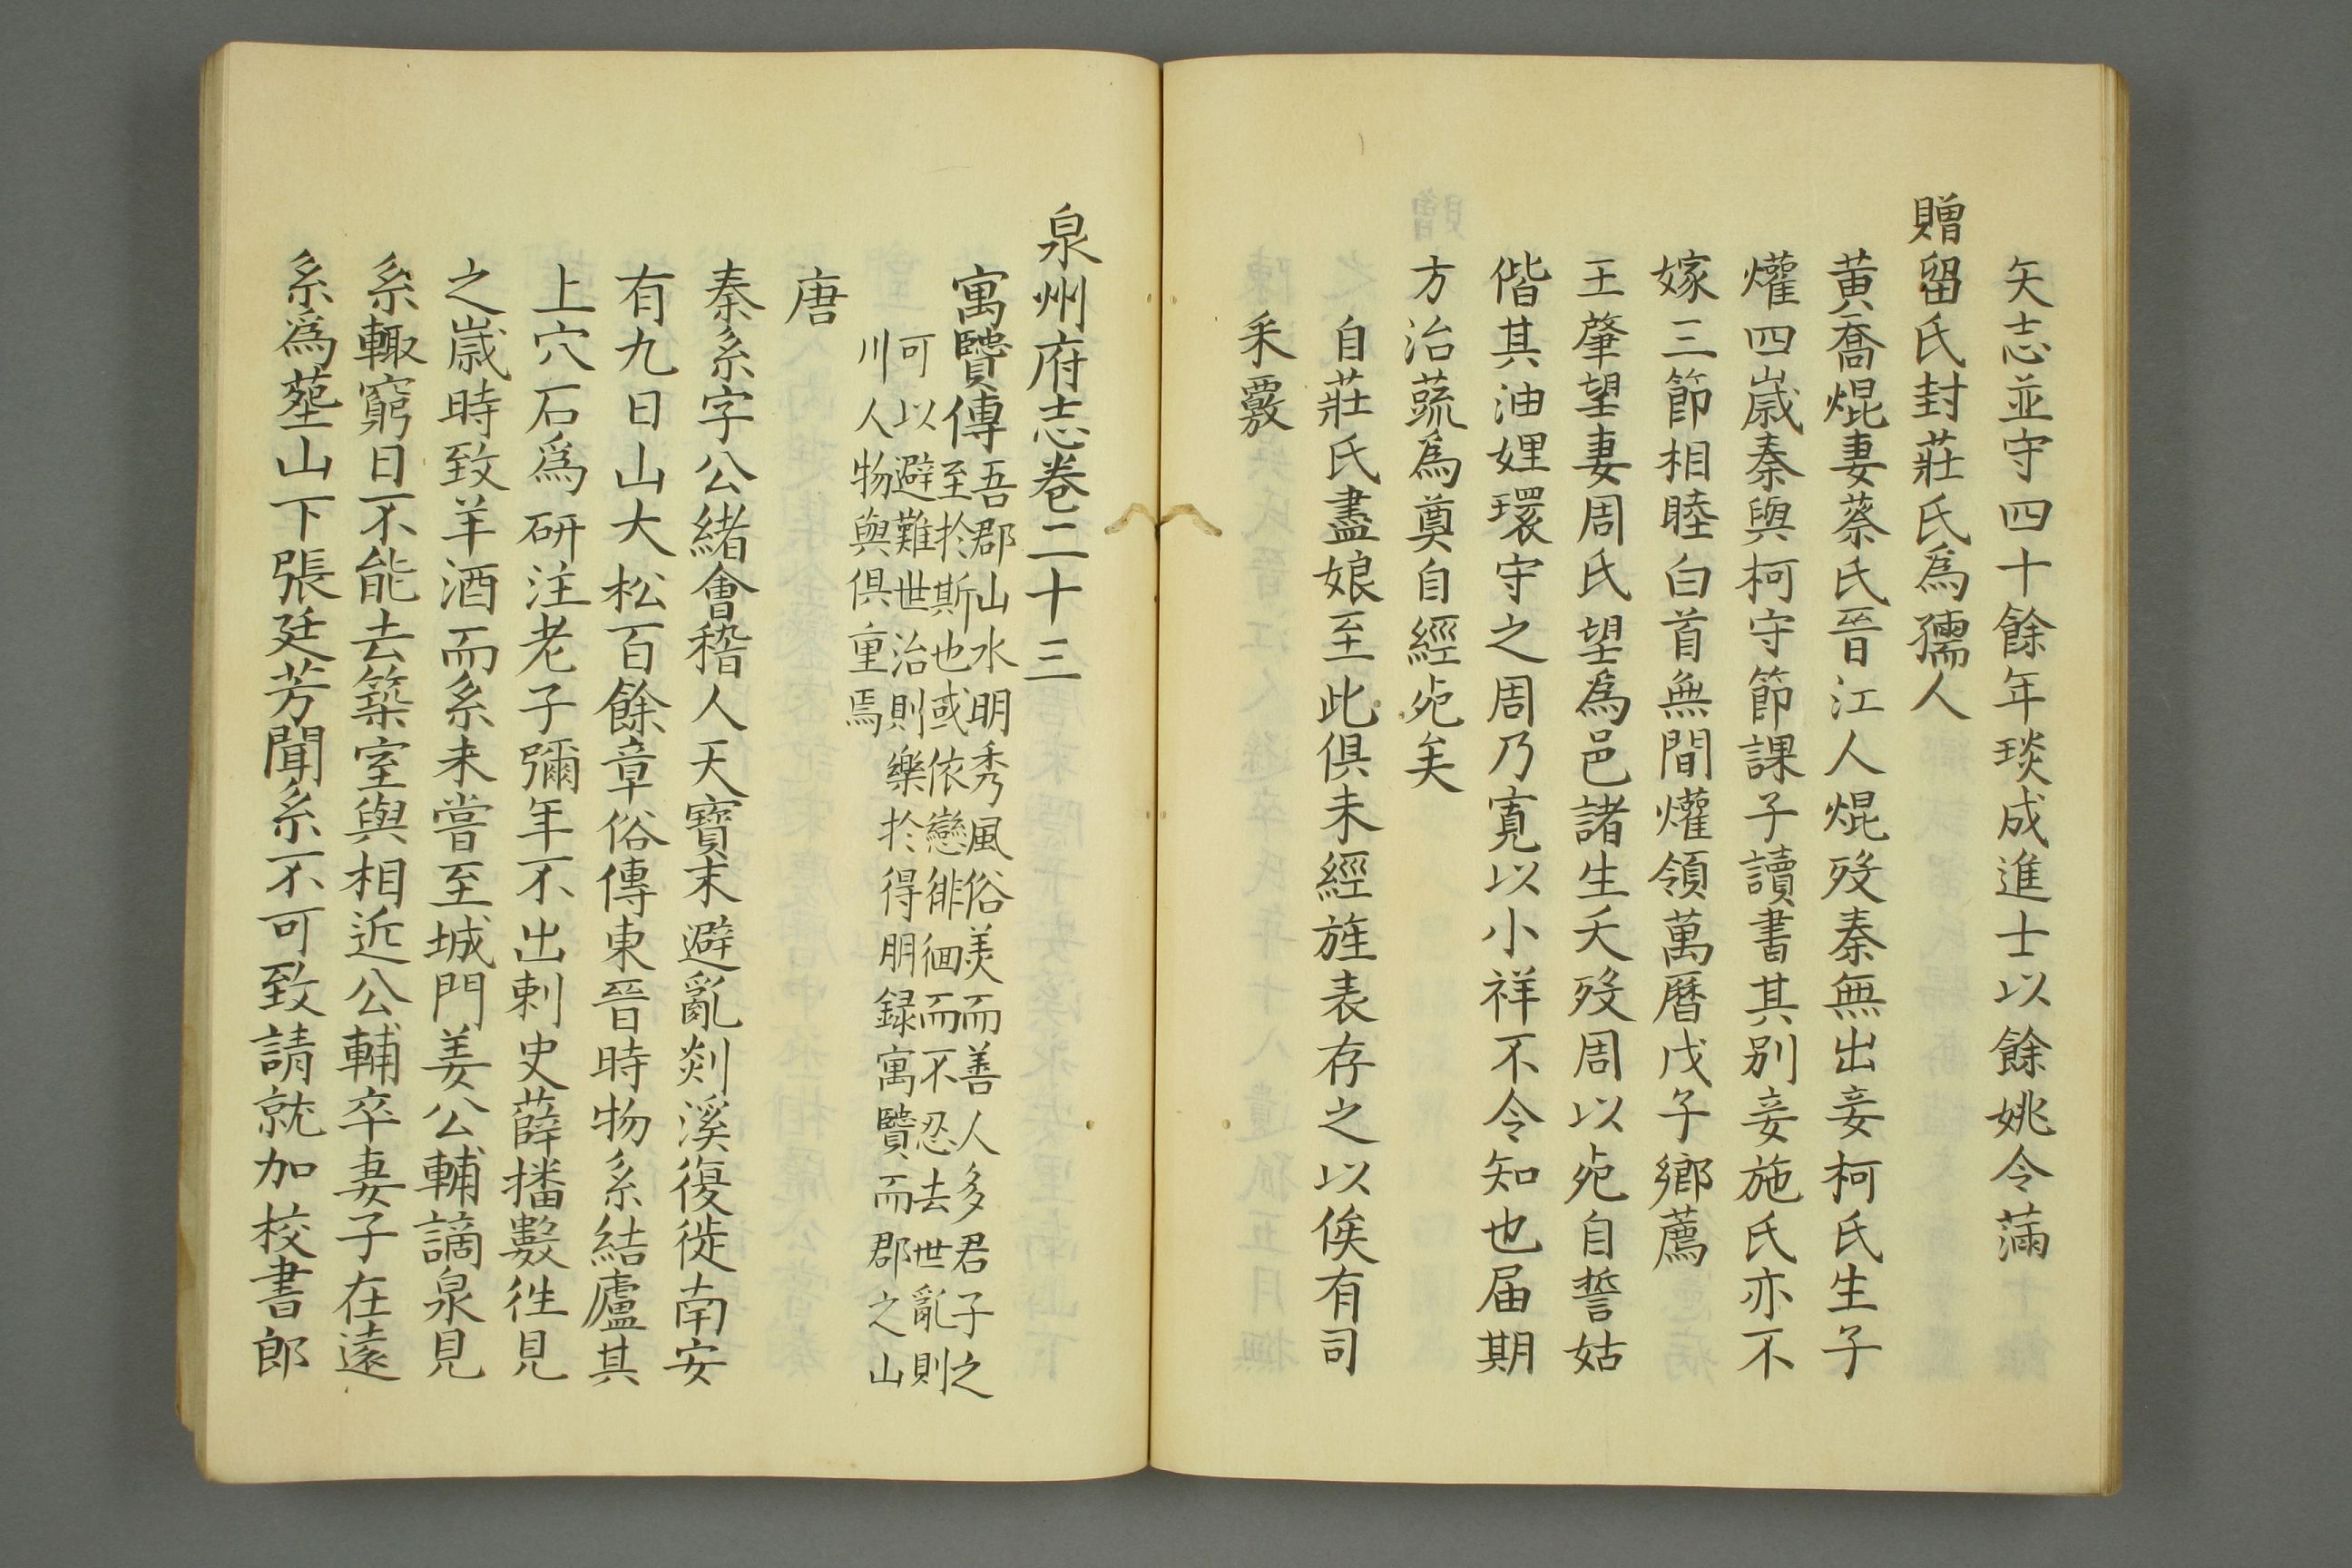 矢志並守四十餘年琰成進士以餘姚令滿
贈留氏封莊氏爲孺人
黃喬焜妻蔡氏晉江人焜歿秦無出妾柯氏生子
爟四歲秦與柯守節課子讀書其别妾施氏亦不
嫁三節相睦白首無間爟領萬曆戊子鄉薦
王肇望妻周氏望爲邑諸生夭歿周以死自誓姑
偕其油娌環守之周乃寬以小祥不令知也届期
方治蔬爲奠自經死矣
自莊氏盡娘至此俱未經旌表存之以俟有司
采覈
泉州府志卷二十三
寓贒傳
吾郡山水明秀風俗美而善人多君子之
至於斯也或依戀徘徊而不忍去世亂則
可以避難世治則樂於得朋録寓贒而郡之山
川人物與俱重焉
唐
秦系字公緒會稽人天寶末避亂剡溪復徙南安
有九日山大松百餘章俗傳東晉時物系結廬其
上穴石爲研注老子彌年不出刺史薛播數徃見
之歲時致羊酒而系未嘗至城門姜公輔謫泉見
系輙窮日不能去築室與相近公輔卒妻子在遠
系爲塟山下張廷芳聞系不可致請就加校書郎